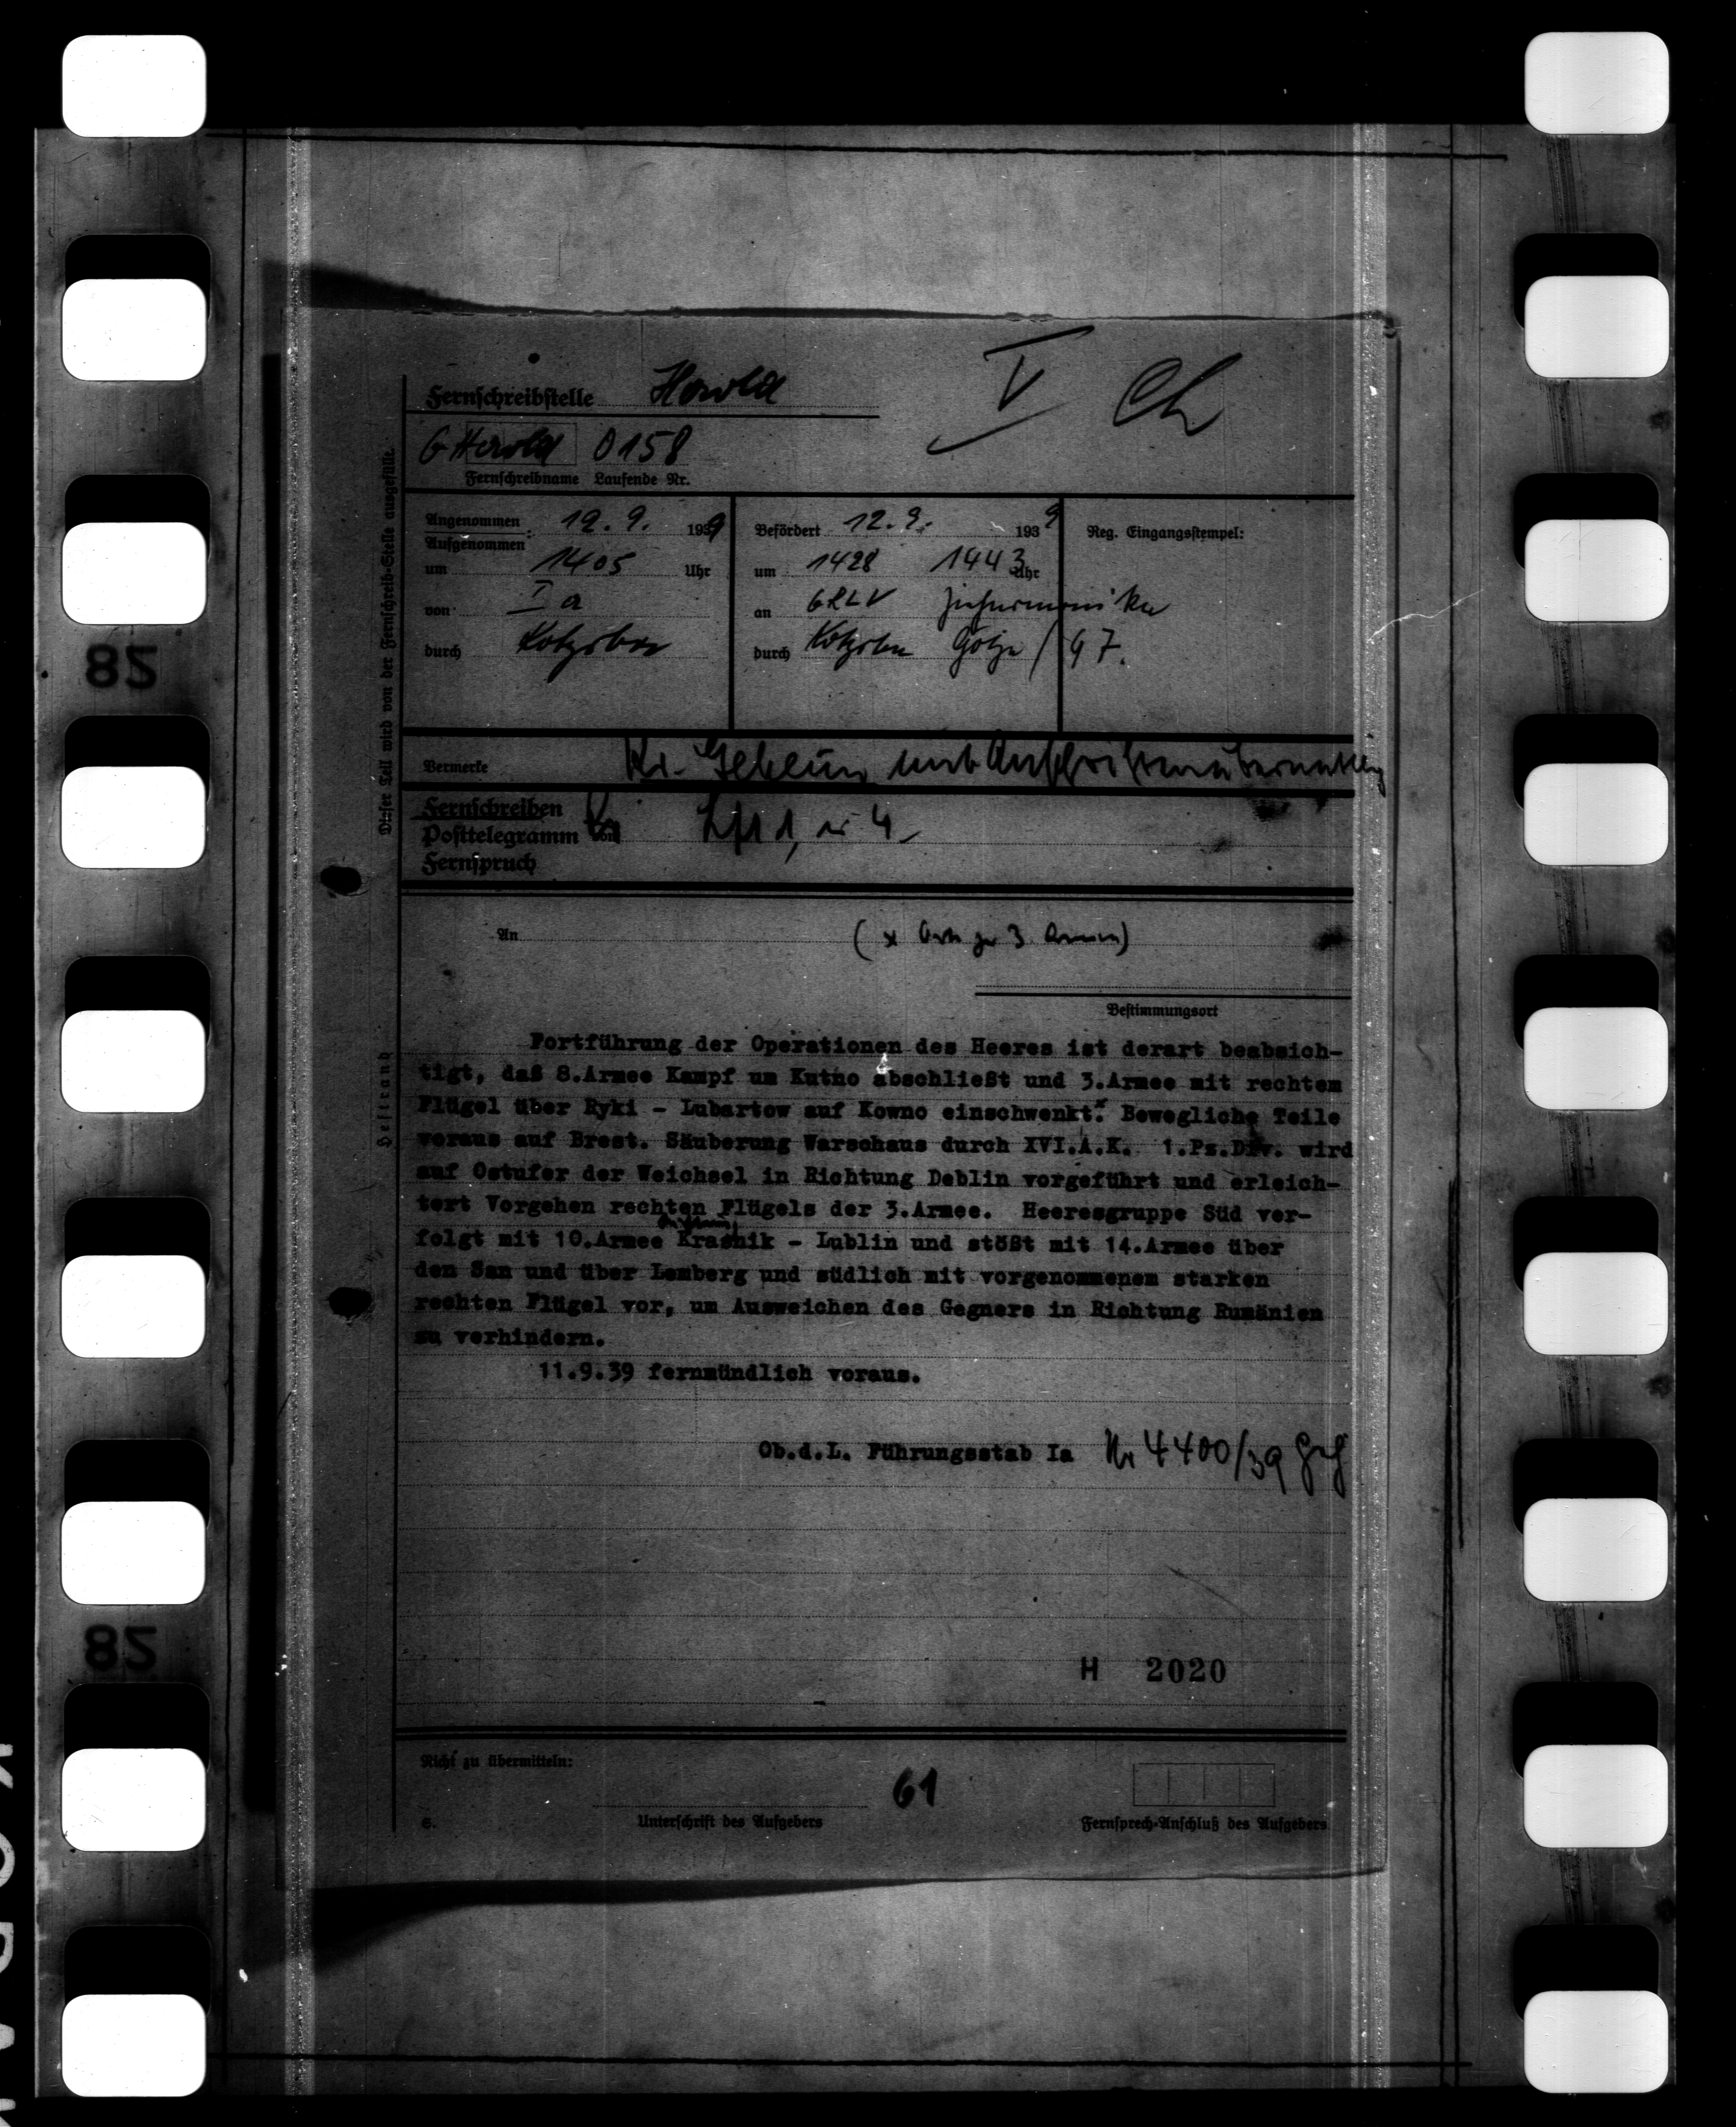 Fernschreibstelle Herold
V Ch
G Herold 0158
Fernschreibname Laufende Nr.
Angenommen
Aufgenommen 12. 9. 1939
um 1405 Uhr
von Ia
durch
Befördert 12. 9. 1939
um 1428 1443 Uhr
an
durch
Reg. Eingangsstempel:
Dieser Teil wird von der Fernschreib-Stelle ausgefüllt.
Vermerke Kr. Geheim mit
Fernschreiben
Posttelegramm von Lfl 1, 4
Fernspruch
An
( x 3. Armee)
Bestimmungsort
Heftrand
Fortführung der Operationen des Heeres ist derart beabsich-
tigt, daß 8.Armee Kampf um Kutno abschließt und 3.Armee mit rechtem
Flügel über Ryki - Lubartow auf Kowno einschwenkt.x Bewegliche Teile
voraus auf Brest. Säuberung Warschaus durch XVI.A.K. 1.Pz.Div. wird
auf Ostufer der Weichsel in Richtung Deblin vorgeführt und erleich-
tert Vorgehen rechten Flügels der 3.Armee. Heeresgruppe Süd ver-
Richtung
folgt mit 10.Armee Krasnik - Lublin und stößt mit 14.Armee über
den San und über Lemberg und südlich mit vorgenommenem starken
rechten Flügel vor, um Ausweichen des Gegners in Richtung Rumänien
zu verhindern.
11.9.39 fernmündlich voraus.
Ob.d.L. Führungsstab Ia Nr 4400/39
H 2020
Nicht zu übermitteln:
61
Unterschrift des Aufgebers
Fernsprech-Anschluß des Aufgebers
82
82